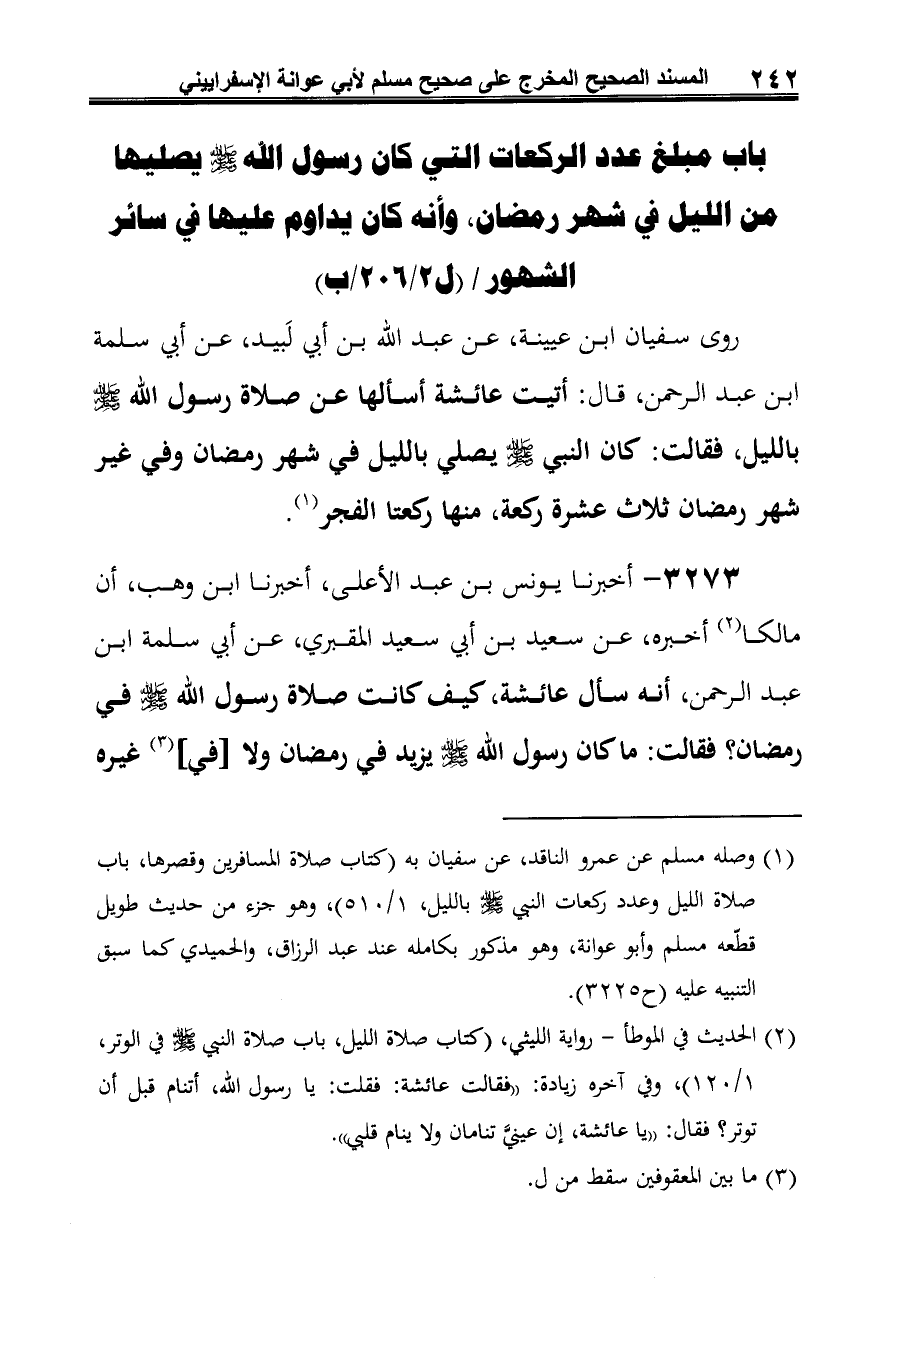 ٢٤٢ المسند الصحيح المخرج على صحيح مسلم لأبي عوانة الإسفراييني
باب مبلغ عدد الركعات التي كان رسول الله ﷺ يصليها
من الليل في شهر رمضان، وأنه كان يداوم عليها في سائر
الشهور / (ل٢٠٦/٢/ب)
روى سفيان ابن عيينة، عن عبد الله بن أبي لَبيد، عن أبي سلمة
ابن عبد الرحمن، قال: أتيت عائشة أسألها عن صلاة رسول الله ﷺ
بالليل، فقالت: كان النبي ﷺ يصلي بالليل في شهر رمضان وفي غير
شهر رمضان ثلاث عشرة ركعة، منها ركعتا الفجر(١).
٣٢٧٣- أخبرنا يونس بن عبد الأعلى، أخبرنا ابن وهب، أن
مالكا(٢) أخبره، عن سعيد بن أبي سعيد المقبري، عن أبي سلمة ابن
عبد الرحمن، أنه سأل عائشة، كيف كانت صلاة رسول الله ﷺ في
رمضان؟ فقالت: ما كان رسول الله ﷺ يزيد في رمضان ولا [في](٣) غيره
(١) وصله مسلم عن عمرو الناقد، عن سفيان به (كتاب صلاة المسافرين وقصرها، باب
صلاة الليل وعدد ركعات النبي ﷺ بالليل، ٥١٠/١)، وهو جزء من حديث طويل
قطّعه مسلم وأبو عوانة، وهو مذكور بكامله عند عبد الرزاق، والحميدي كما سبق
التنبيه عليه (ح٣٢٢٥).
(٢) الحديث في الموطأ - رواية الليثي، (كتاب صلاة الليل، باب صلاة النبي ﷺ في الوتر،
١٢٠/١)، وفي آخره زيادة: «فقالت عائشة: فقلت: يا رسول الله، أتنام قبل أن
توتر؟ فقال: «يا عائشة، إن عينيَّ تنامان ولا ينام قلبي».
(٣) ما بين المعقوفين سقط من ل.